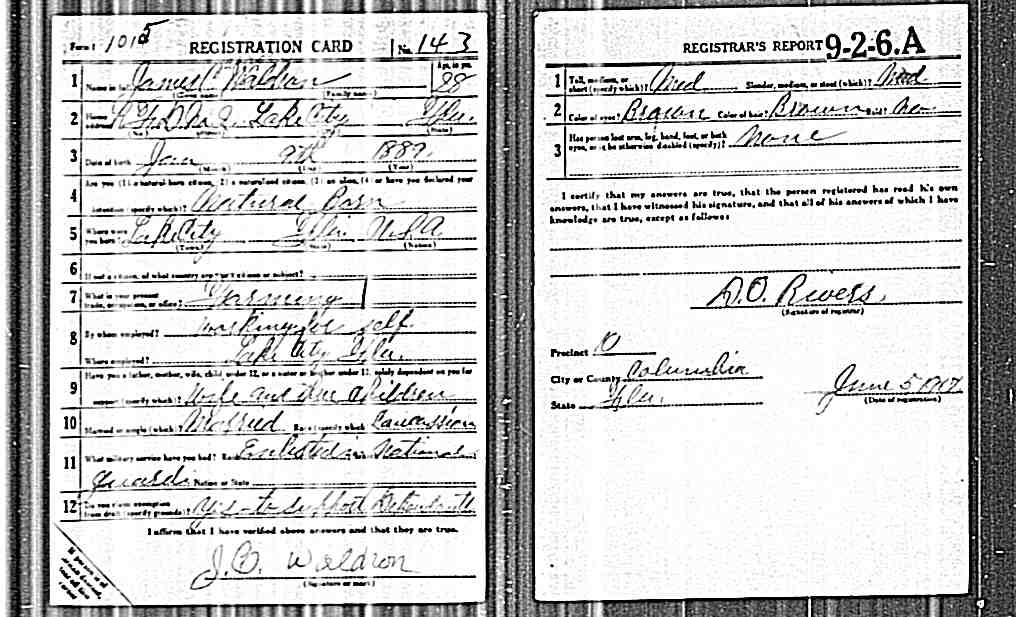 Form 1 1015 REGISTRATION CARD No. 143
1 Name in full James C Waldron Age, in yrs. 28
(Given name) (Family name)
2 Home address R.F.D. No. 2 Lake City Fla.
(No.) (Street) (City) (State)
3 Date of birth Jan 9th 1889
(Month) (Day) (Year)
Are you (1) a natural-born citizen, (2) a naturalized citizen, (3) an alien, (4) or have you declared your
4 intention (specify which)? Natural Born
5 Where were you born? Lake City Fla. U.S.A
(Town) (State) (Nation)
6 If not a citizen, of what country are you a citizen or subject?
7 What is your present trade, occupation, or office? Farming
8 By whom employed? Working for self
Where employed? Lake City Fla.
9 Have you a father, mother, wife, child under 12, or a sister or brother under 12, solely dependent on you for
support (specify which)? Wife and children
10 Married or single (which)? Married Race (specify which)? Caucassian
11 What military service have you had? Rank Enlisted National
Guards Nation or State
12 Do you claim exemption from draft (specify grounds)? Yes - to support Dependents
I affirm that I have verified above answers and that they are true.
J.C. Waldron
(Signature or mark)
If person is of
REGISTRAR'S REPORT 9-2-6.A
1 Tall, medium, or short (specify which)? Med Slender, medium, or stout (which)? Med
2 Color of eyes? Brown Color of hair? Brown Bald? No
3 Has person lost arm, leg, hand, foot, or both eyes, or is he otherwise disabled (specify)? None
I certify that my answers are true, that the person registered has read his own
answers, that I have witnessed his signature, and that all of his answers of which I have
knowledge are true, except as follows:
D.O. Rivers.
(Signature of registrar)
Precinct 10
City or County Columbia
State Fla. June 5 1917
(Date of registration)